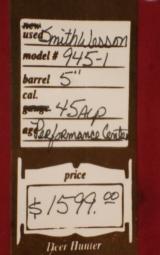 new
used Smith Wesson
model # 945-1
barrel 5"
cal.
gauge 45 Acp
age Performance Center
price
$1599.00
Deer Hunter